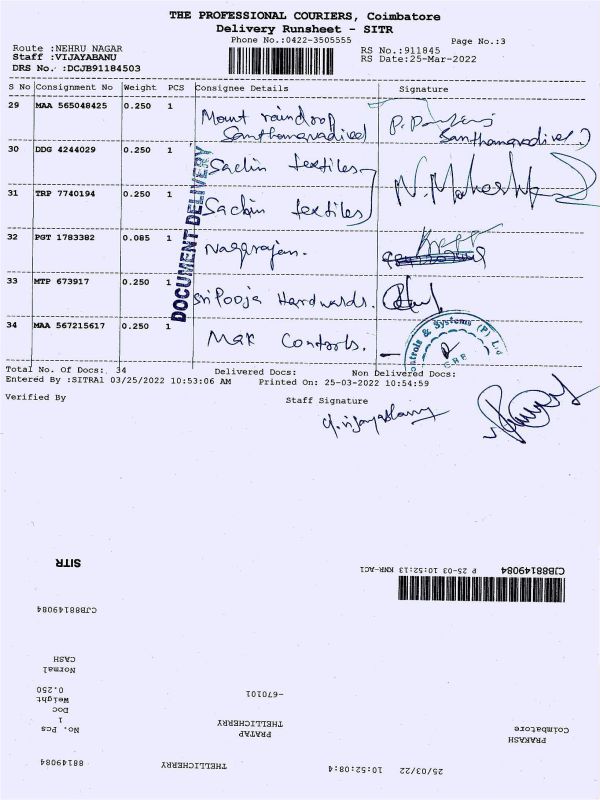 THE PROFESSIONAL COURIERS, Coimbatore
Delivery Runsheet - SITR
Phone No.:0422-3505555
Page No.:3
Route :NEHRU NAGAR
RS No.:911845
Staff :VIJAYABANU
RS Date:25-Mar-2022
DRS No. :DCJB91184503
S No Consignment No Weight PCS Consignee Details Signature
29 MAA 565048425 0.250 1 Mount raindrop
Santhamaradived
30 DDG 4244029 0.250 1 Sachin textiles
31 TRP 7740194 0.250 1 Sachin textiles
32 PGT 1783382 0.085 1 Nagarajan.
33 MTP 673917 0.250 1 Sri Pooja Hardwards.
34 MAA 567215617 0.250 1 Mak Controls.
DOCUMENT DELIVERY
ntrols & Systems (P) Ltd
CBE
Total No. Of Docs: 34 Delivered Docs: Non Delivered Docs:
Entered By :SITRA1 03/25/2022 10:53:06 AM Printed On: 25-03-2022 10:54:59
Verified By Staff Signature
SITR
CJB88149084 P 25-03 10:52:13 KNR-AC1
CJB88149084
CASH
Normal
0.250
Weight
Doc
1
No. Pcs
-670101
THELLICHERRY
PRATAP
Coimbatore
PRAKASH
88149084
THELLICHERRY
25/03/22 10:52:08:4